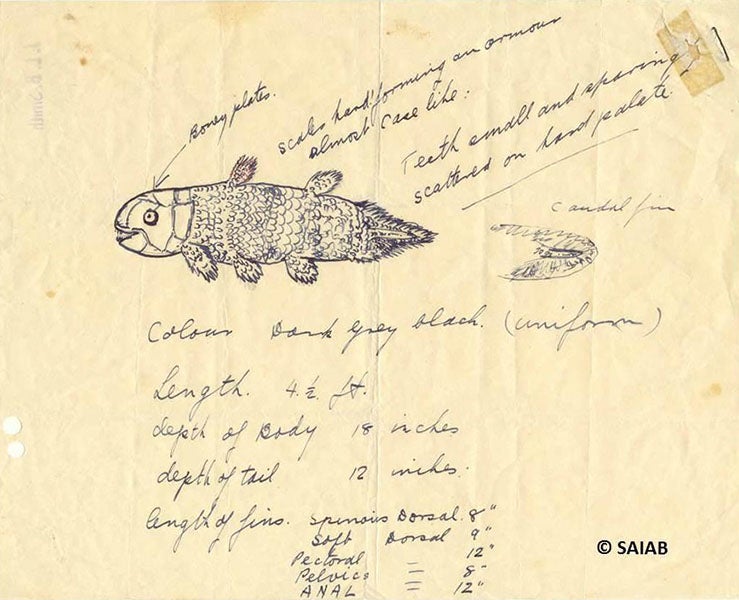 Boney plates.
Scales hard! forming an armour
almost case like.
Teeth small and sparing
scattered on hard palate
Caudal fin
Colour Dark Grey black. (uniform)
Length. 4 ½ ft.
depth of Body 18 inches
depth of tail 12 inches.
length of fins. Spinous Dorsal. 8"
Soft Dorsal 9"
Pectoral = 12"
Pelvics = 8"
ANAL = 12"
© SAIAB